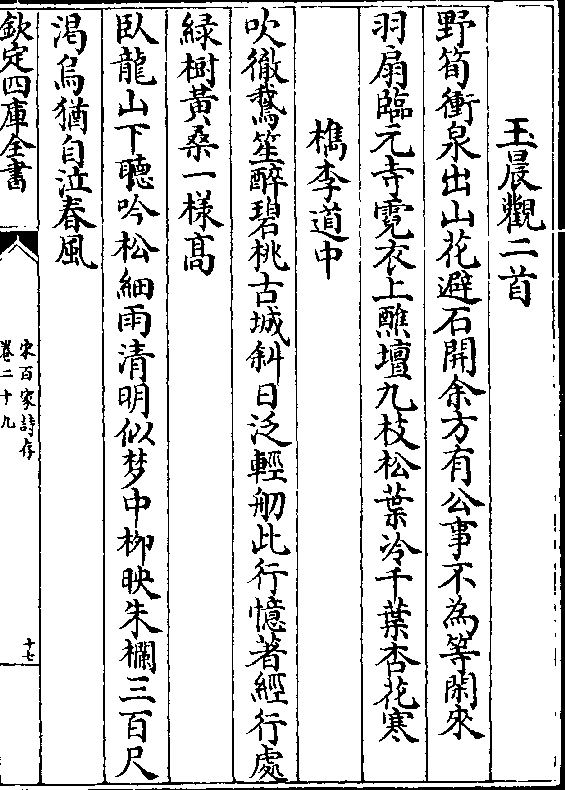 玉晨觀二首
野筍衝泉出山花避石開余方有公事不為等閑來
羽扇臨元寺霓衣上醮壇九枝松葉冷千葉杏花寒
檇李道中
吹徹鵞笙醉碧桃古城斜日泛輕舠此行憶著經行處
緑樹黃桑一様髙
臥龍山下聽吟松細雨清明似梦中栁映朱欄三百尺
渴烏猶自泣春風
欽定四庫全書
宋百家詩存
卷二十九
十七